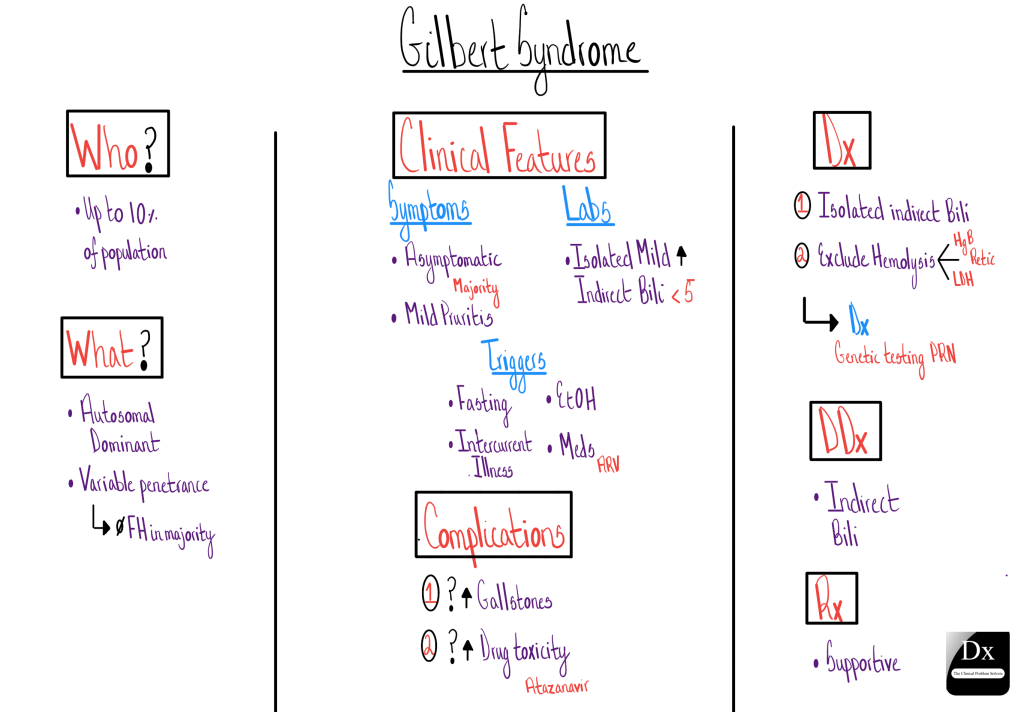 Gilbert Syndrome
Who?
• Up to 10%
of population
What?
• Autosomal
Dominant
• Variable penetrance
↳ Ø FH in majority
Clinical Features
Symptoms
• Asymptomatic
Majority
• Mild Pruritis
Labs
• Isolated Mild ↑
Indirect Bili < 5
Triggers
• Fasting
• Intercurrent
Illness
• EtOH
• Meds
ARV
Complications
① ? ↑ Gallstones
② ? ↑ Drug toxicity
Atazanavir
Dx
① Isolated indirect Bili
② Exclude Hemolysis
HgB
Retic
LDH
↳ Dx
Genetic testing PRN
DDx
• Indirect
Bili
Rx
• Supportive
Dx
The Clinical Problem Solvers